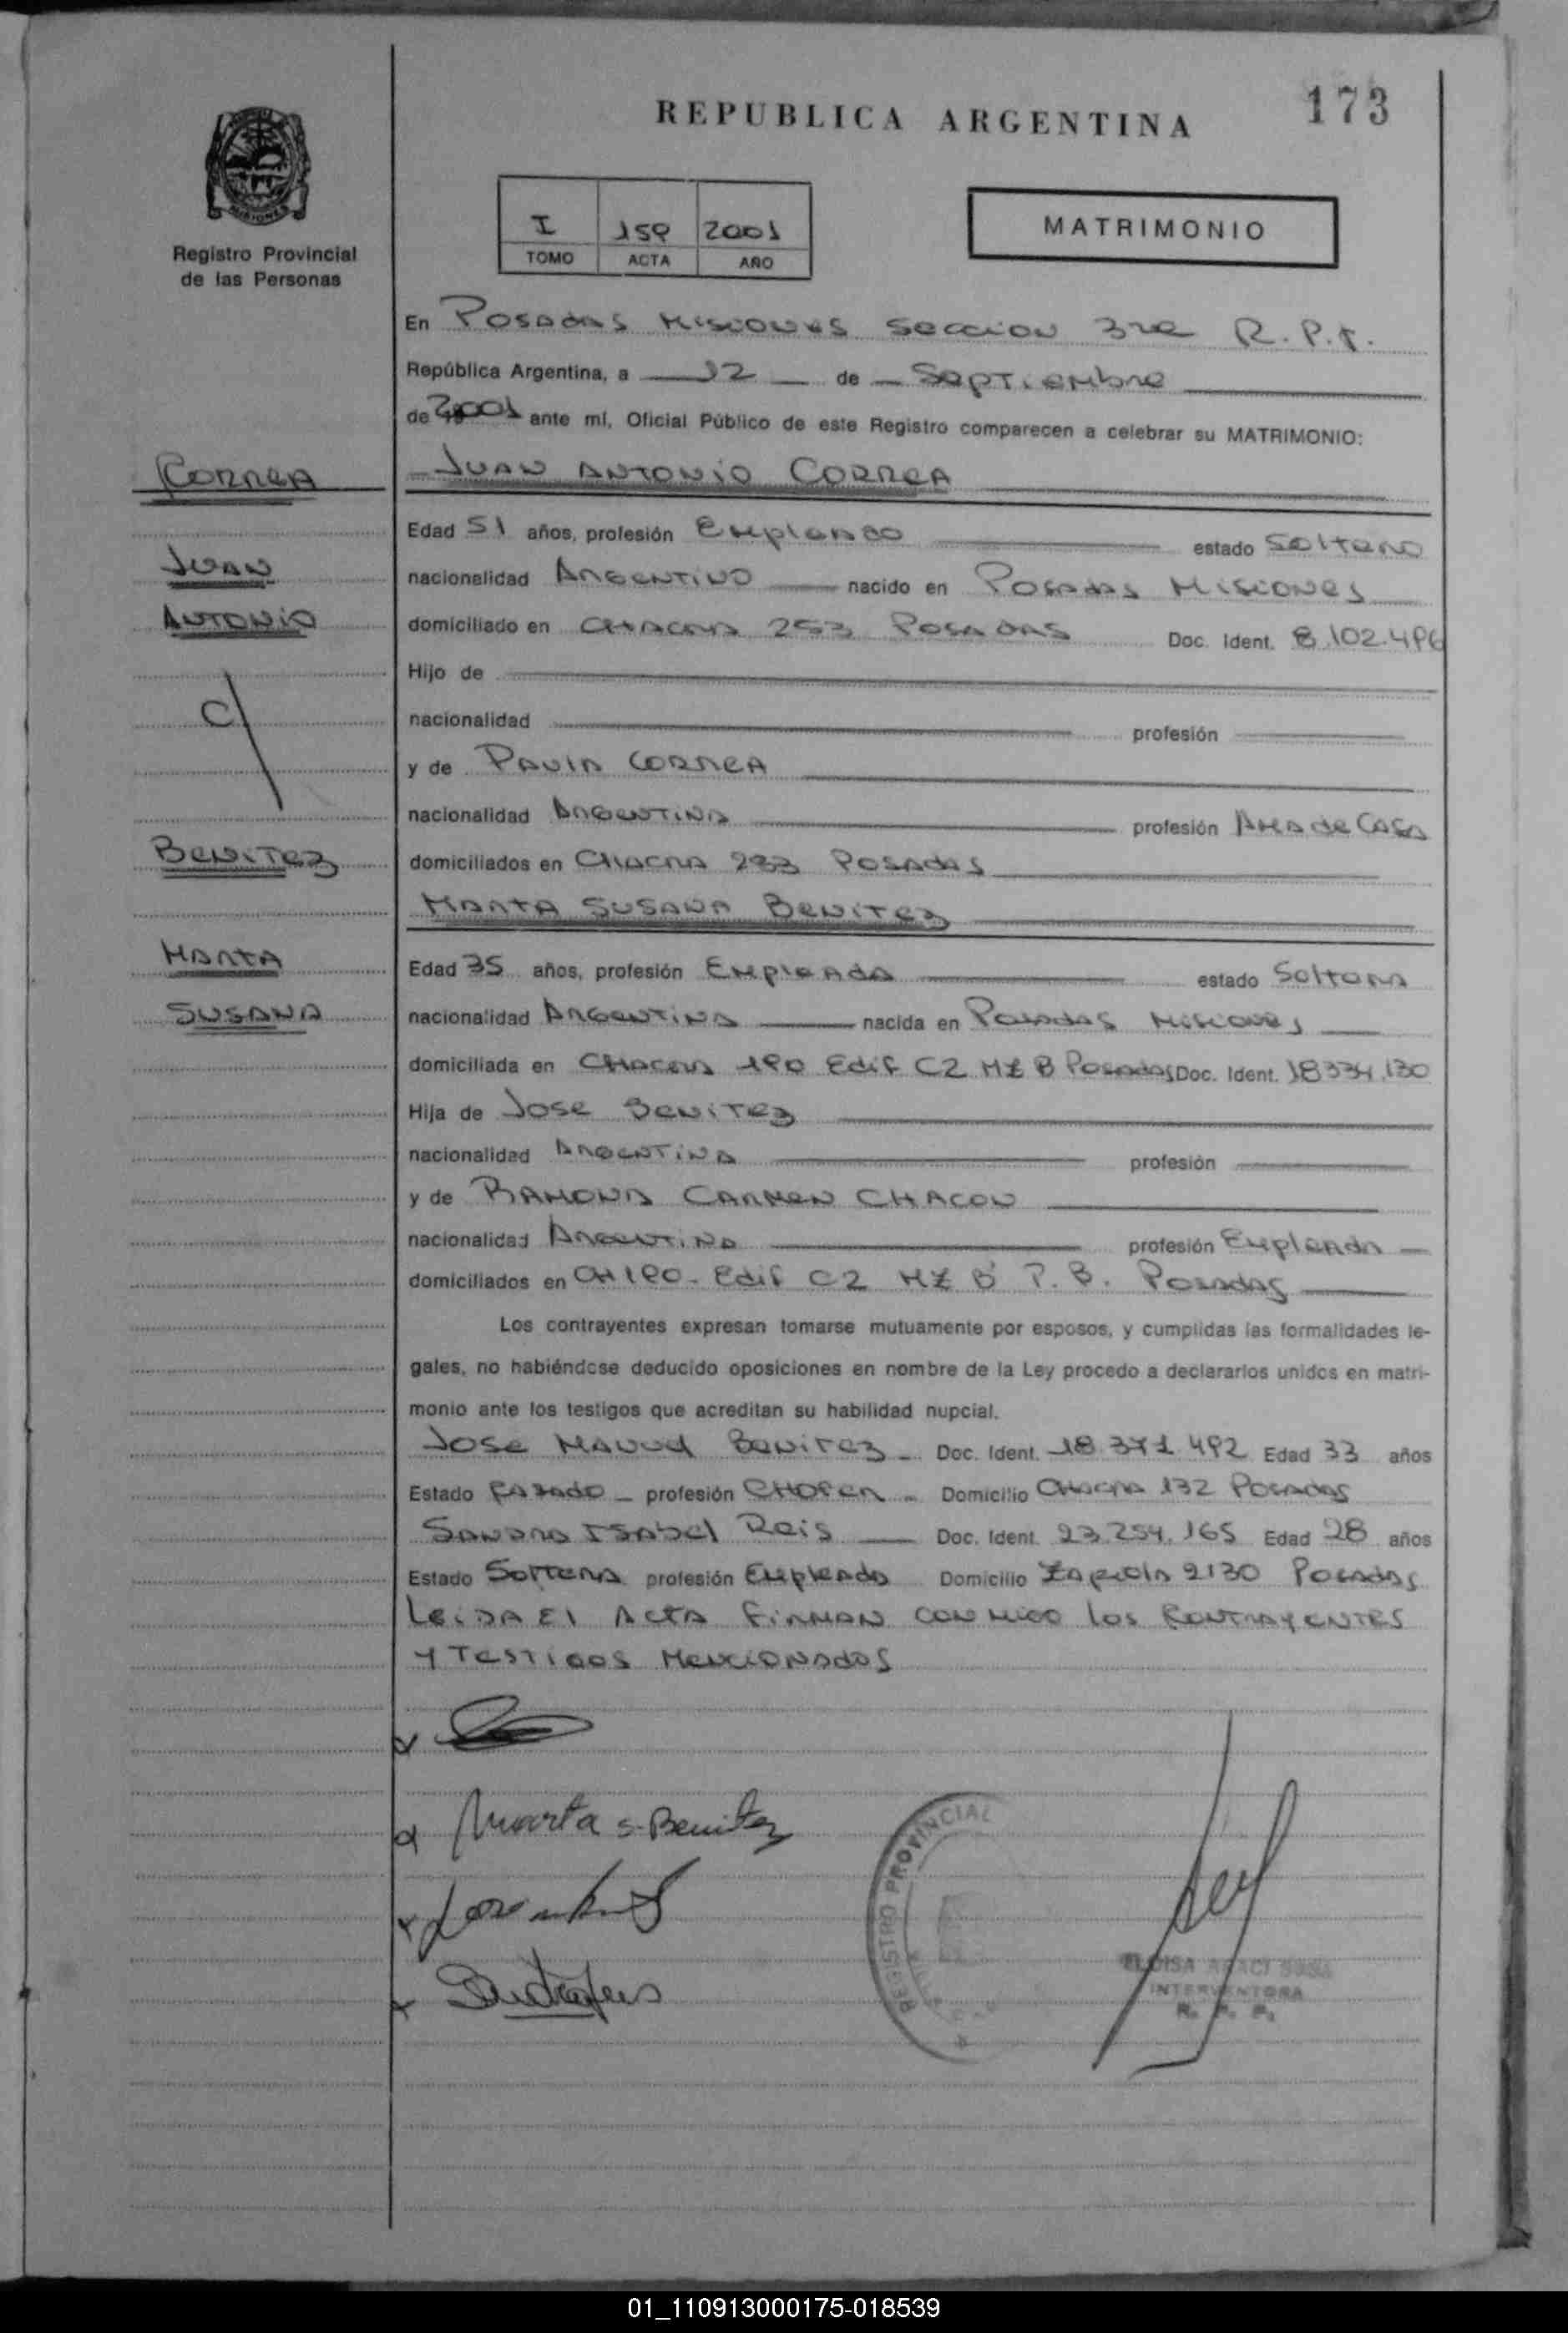 REPUBLICA ARGENTINA
173
MISIONES
Registro Provincial
de las Personas
I 159 2001
TOMO ACTA AÑO
MATRIMONIO
En Posadas Misiones Seccion 3ra R.P.P.
República Argentina, a 12 de Septiembre
de 2001 ante mí, Oficial Público de este Registro comparecen a celebrar su MATRIMONIO:
CORREA
JUAN ANTONIO CORREA
Edad 51 años, profesión Empleado estado Soltero
JUAN
nacionalidad Argentino nacido en Posadas Misiones
ANTONIO
domiciliado en Chacra 253 Posadas Doc. Ident. 8.102.496
Hijo de
C/
nacionalidad profesión
y de Paula Correa
nacionalidad Argentina profesión Ama de Casa
BENITEZ
domiciliados en Chacra 253 Posadas
MARTA SUSANA BENITEZ
MARTA
Edad 35 años, profesión Empleada estado Soltera
SUSANA
nacionalidad Argentina nacida en Posadas Misiones
domiciliada en Chacra 190 Edif C2 Mz B Posadas Doc. Ident. 18334.130
Hija de Jose Benitez
nacionalidad Argentina profesión
y de Ramona Carmen Chacon
nacionalidad Argentina profesión Empleada
domiciliados en CH 190 - Edif C2 Mz B P.B. Posadas
Los contrayentes expresan tomarse mutuamente por esposos, y cumplidas las formalidades le-
gales, no habiéndose deducido oposiciones en nombre de la Ley procedo a declararlos unidos en matri-
monio ante los testigos que acreditan su habilidad nupcial.
Jose Manuel Benitez - Doc. Ident. 18.371.492 Edad 33 años
Estado Casado - profesión Chofer - Domicilio Chacra 132 Posadas
Sandra Isabel Reis Doc. Ident. 23.254.165 Edad 28 años
Estado Soltera profesión Empleada Domicilio Zapiola 2130 Posadas
Leida El Acta Firman conmigo los Contrayentes
y Testigos Mencionados
Marta S. Benitez
REGISTRO PROVINCIAL
INTERVENTORA
R. P. P.
01_110913000175-018539